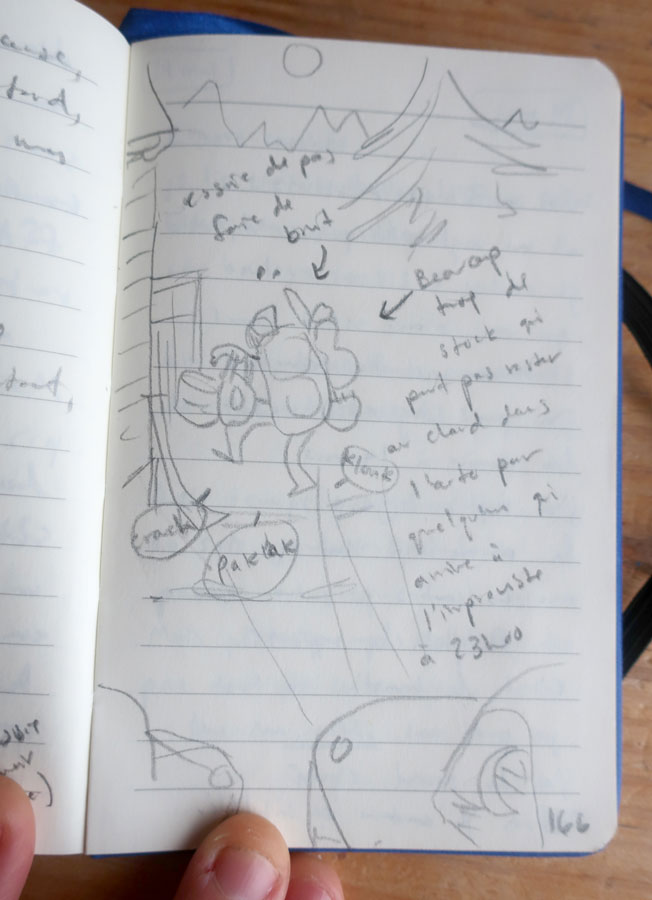 tard,
essaie de pas
faire de
bruit
Beaucoup
trop de
stock qui
peut pas rester
au chaud dans
par
quelqu'un qui
arrive à
l'improviste
à 23h00
klonk
crack
paktak
166